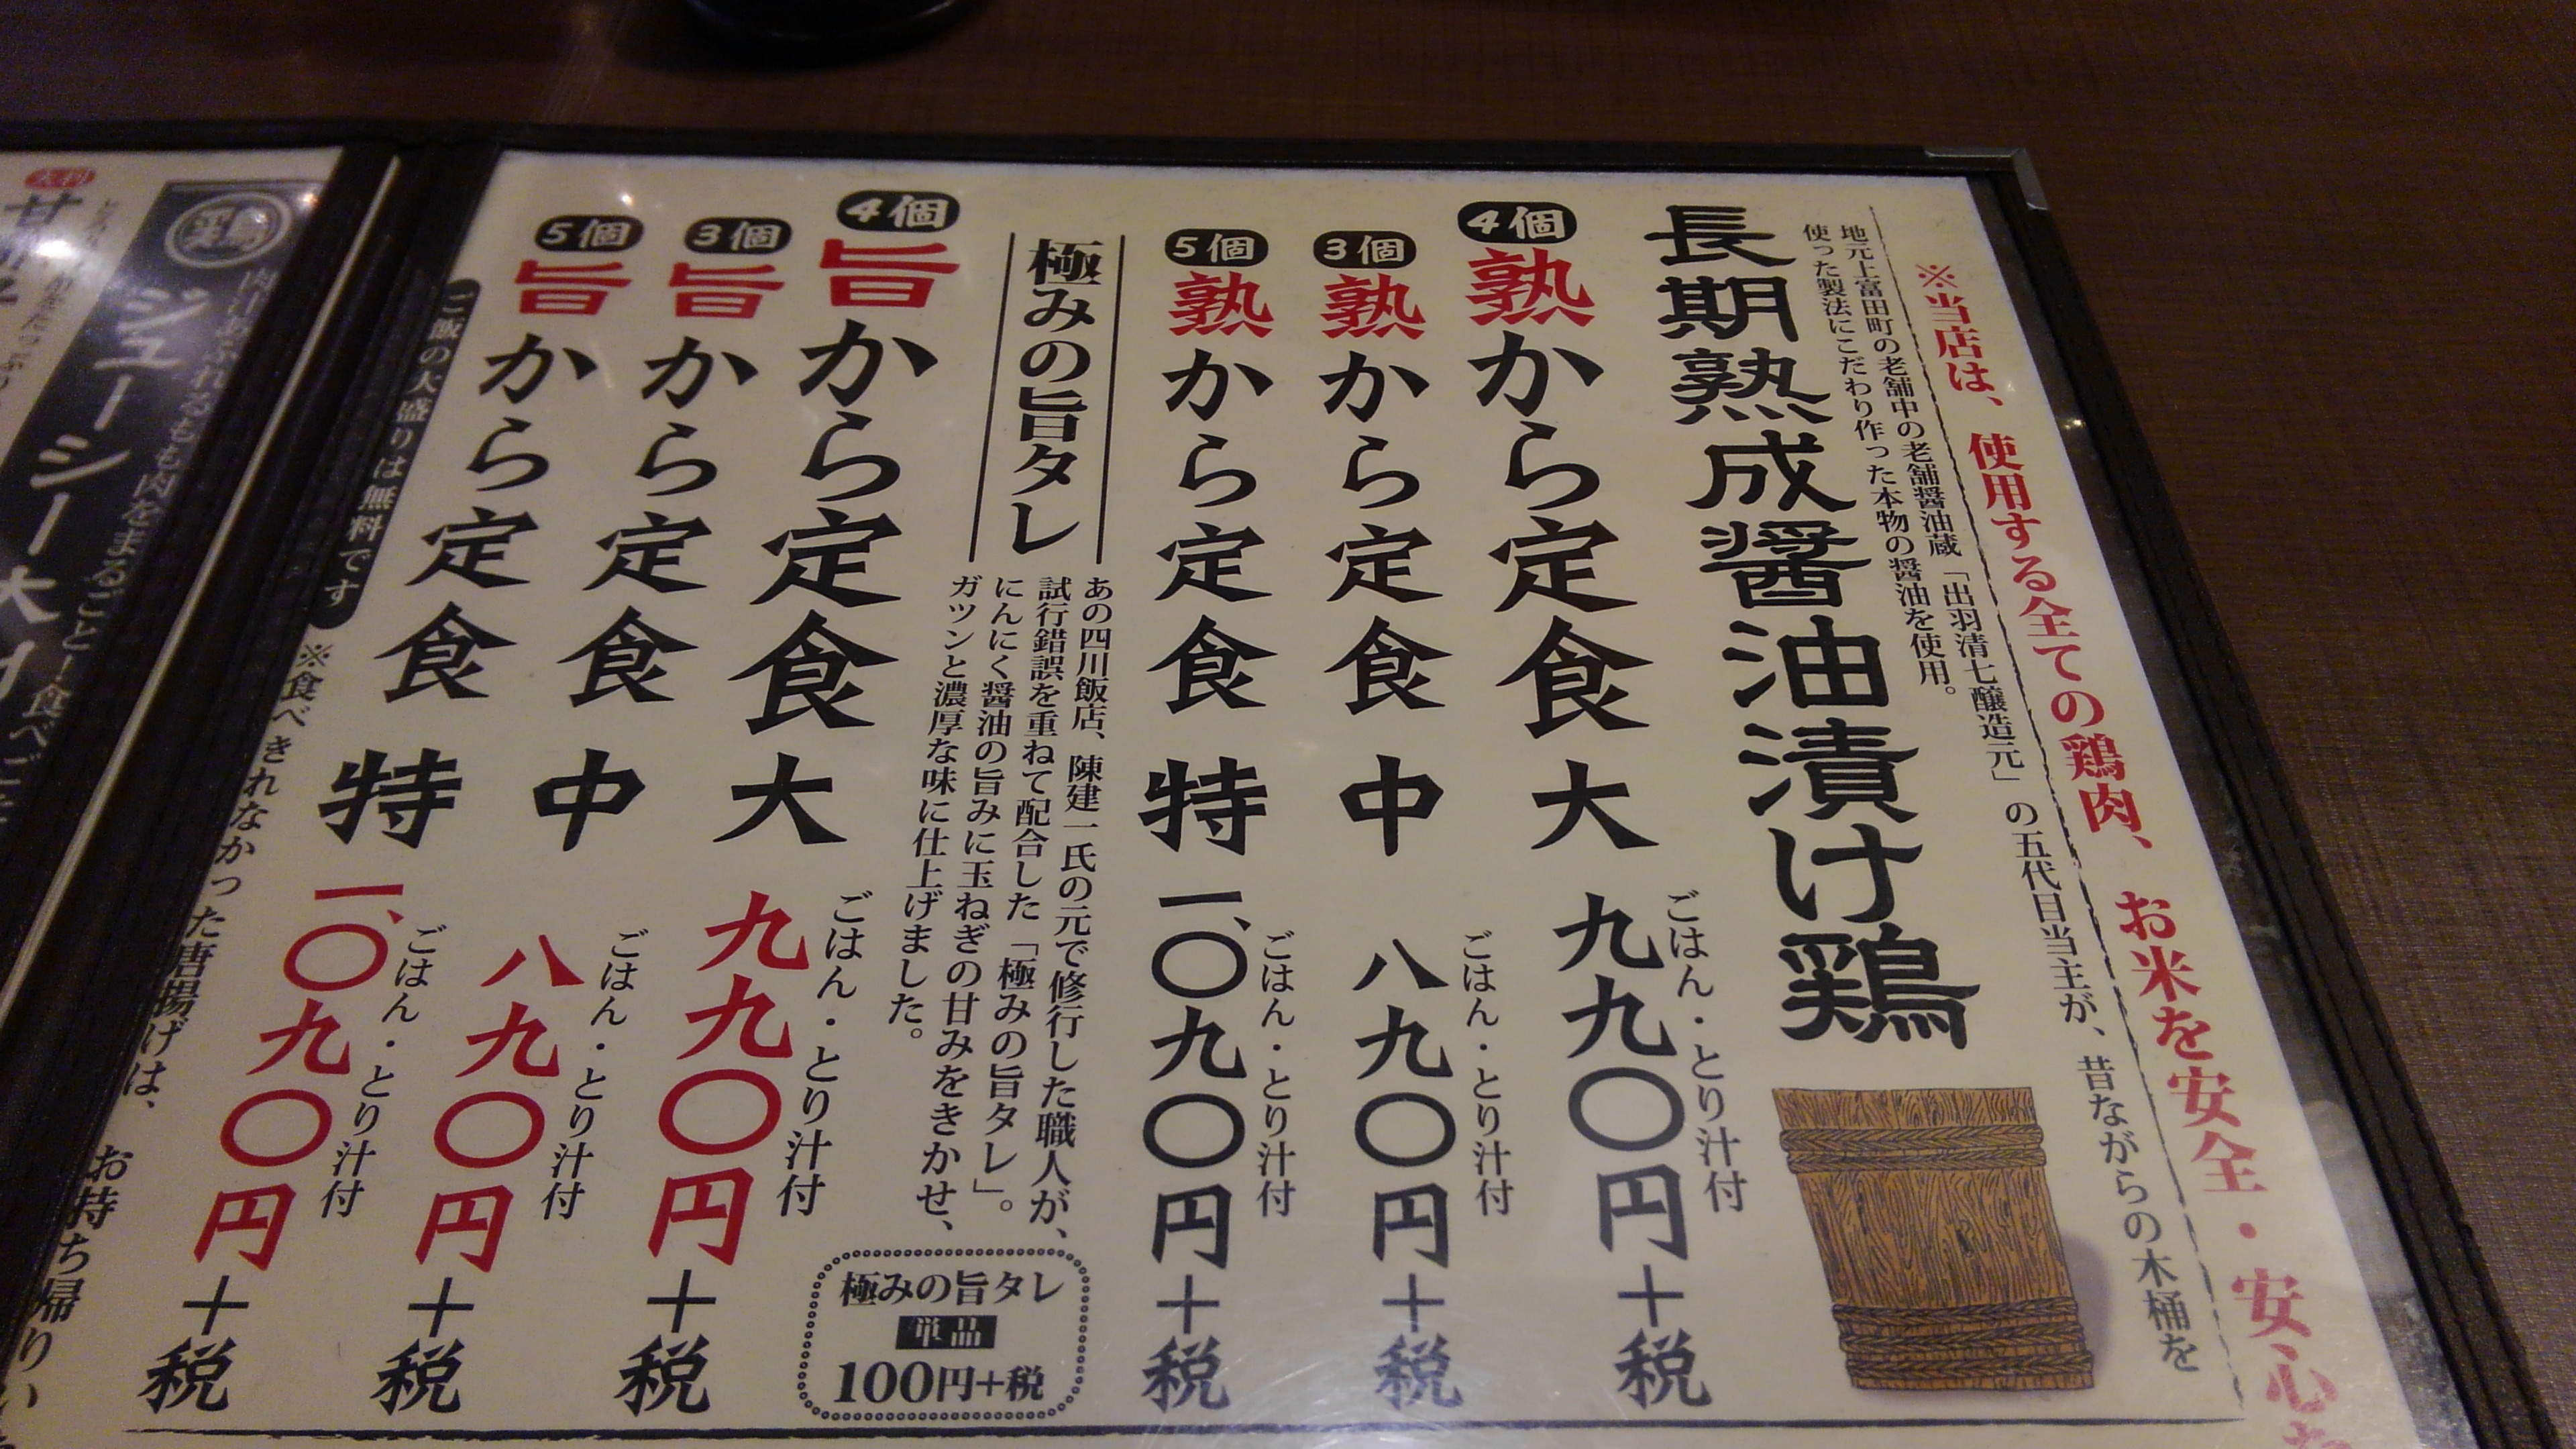 ※当店は、使用する全ての鶏肉、お米を安全・安心
地元上富田町の老舗中の老舗醤油蔵「出羽清七醸造元」の五代目当主が、昔ながらの木桶を
使った製法にこだわり作った本物の醤油を使用。
長期熟成醤油漬け鶏
4個
熟から定食 大 九九〇円+税
ごはん・とり汁付
3個
熟から定食 中 八九〇円+税
ごはん・とり汁付
5個
熟から定食 特 一、〇九〇円+税
ごはん・とり汁付
極みの旨タレ
あの四川飯店、陳建一氏の元で修行した職人が、
試行錯誤を重ねて配合した「極みの旨タレ」。
にんにく醤油の旨みに玉ねぎの甘みをきかせ、
ガツンと濃厚な味に仕上げました。
極みの旨タレ
単品
100円+税
4個
旨から定食 大 九九〇円+税
ごはん・とり汁付
3個
旨から定食 中 八九〇円+税
ごはん・とり汁付
5個
旨から定食 特 一、〇九〇円+税
ごはん・とり汁付
ご飯の大盛りは無料です
※食べきれなかった唐揚げは、お持ち帰りい
肉をまるごと!食べご
ジューシー大